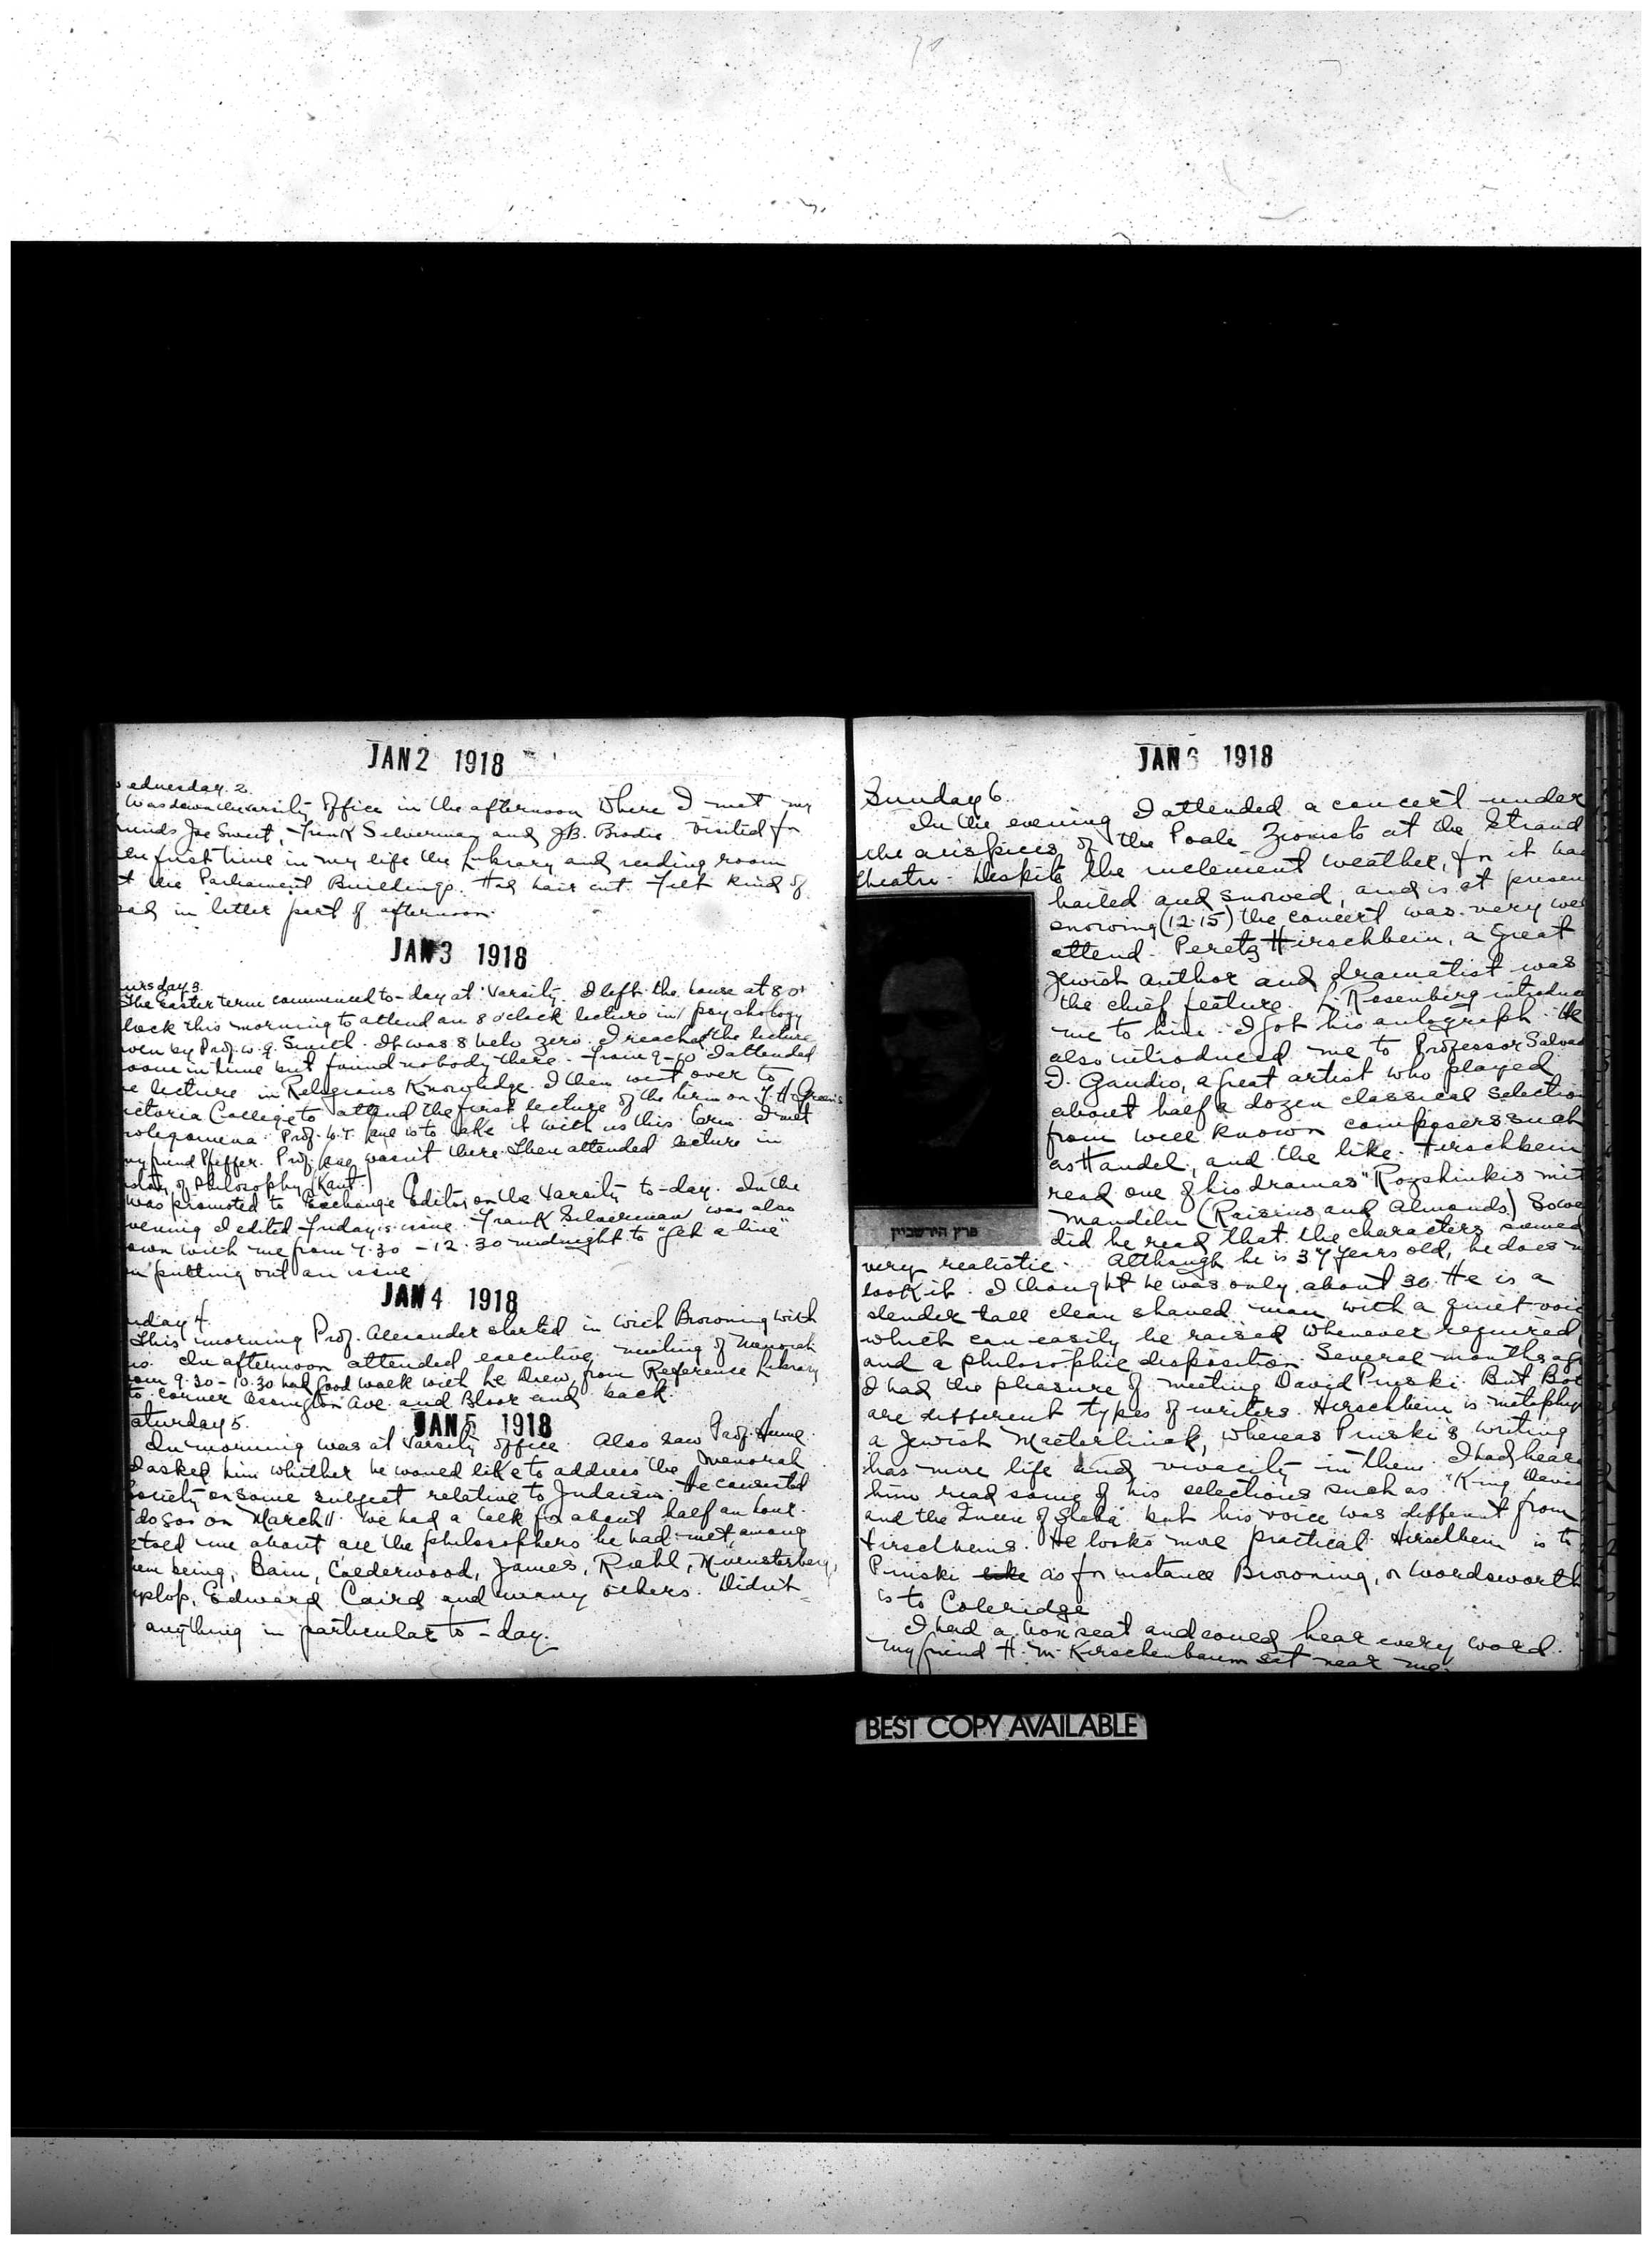 JAN 2 1918
ednesday 2.
Was down the Varsity Office in the afternoon where I met my
friends Joe Sweet, Frank Silverman and J.B. Brodie. Visited for
the first time in my life the Library and reading room
at the Parliament Buildings. Had hair cut. Felt kind of
sad in latter part of afternoon.
JAN 3 1918
ursday 3.
The Easter term commenced to-day at 'Varsity. I left the house at 8 o'
lock this morning to attend an 8 o'clock lecture in psychology
ven by Prof. W. G. Smith. It was 8 belo zero. I reached the lecture
room in time but found nobody there. From 9-10 I attended
e lecture in Religious Knowledge. I then went over to
ictoria College to attend the first lecture of the term on T. H. Green's
rolegomena. Prof. is to take it with us this term. I met
my friend Pfeffer. Prof. wasn't there. Then attended lecture in
history of Philosophy (Kant.)
was promoted to Exchange Editor on the Varsity to-day. In the
vening I edited Friday's issue. Frank Silverman was also
own with me from 7.30 - 12.30 midnight to "get a line"
on putting out an issue.
JAN 4 1918
riday 4.
This morning Prof. Alexander started in with Browning with
us. In afternoon attended executive meeting of Menorah
om 9.30 - 10.30 had good walk with he Drew, from Reference Library
to corner Ossington Ave. and Bloor and back.
aturday 5.
JAN 5 1918
In morning was at Varsity office. Also saw Prof. Hume.
I asked him whether he would like to address the Menorah
Society on some subject relative to Judaism. He consented
do so on March 11. We had a talk for about half an hour.
e told me about all the philosophers he had met, among
hem being, Bain, Calderwood, James, Riehl, Muensterberg,
Edward Caird and many others. Didn't
anything in particular to-day.
JAN 6 1918
Sunday 6.
In the evening I attended a concert under
the auspices of the Poale Zionists at the Strand
Theatre. Despite the inclement weather, for it had
hailed and snowed, and is at presen
snowing (12.15) the concert was very wel
attend. Peretz Hirschbein, a great
Jewish author and dramatist was
the chief feature. L. Rosenberg introduc
me to him. I got his autograph. He
also introduced me to Professor Salvad
I. Gaudio, a great artist who played
about half a dozen classical selection
from well known composers such
as Handel, and the like. Hirschbein
read one of his dramas "Rozshinkis mit
Mandilu (Raisins and Almonds.) So we
did he read that the characters seemed
פרץ הירשביין
very realistic. Although he is 37 years old, he does n
look it. I thought he was only about 30. He is a
slender tall clean shaved man with a quiet voic
which can easily be raised whenever required
and a philosophic disposition. Several months ago
I had the pleasure of meeting David Pinski. But Bot
are different types of writers. Hirschbein is metaphy
a Jewish Maeterlinck, whereas Pinski's writing
has more life and vivacity in them. I had hear
him read some of his selections such as "King David
and the Queen of Sheba" but his voice was different from
Hirschbeins. He looks more practical. Hirschbein is to
Pinski like as for instance Browning, or Wordsworth
is to Coleridge
I had a box seat and could hear every word.
My friend H. M. Kirschenbaum sat near me.
BEST COPY AVAILABLE